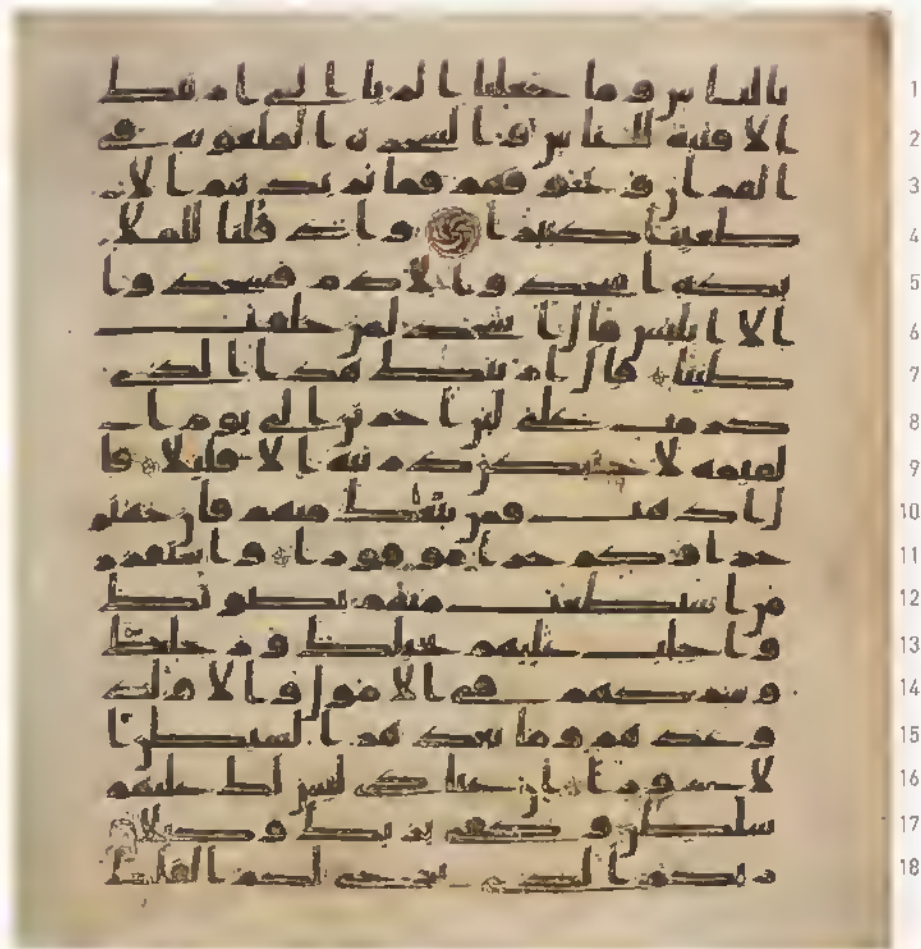 1 بالناس وما جعلنا الريا التي ارينك
2 الا فتنة للناس والشجرة الملعونة في
3 القران ونخوفهم فما يزيدهم الا
4 طغينا كبيرا واذ قلنا للملا
5 يكة اسجدوا لادم فسجدوا
6 الا ابليس قال ااسجد لمن خلقت
7 طينا قال اريتك هذا الذي
8 كرمت علي لين اخرتن الى يوم ا
9 لقيمة لاحتنكن ذريته الا قليلا قا
10 ل اذهب فمن تبعك منهم فان جهنم
11 جزاوكم جزا موفورا واستفزز
12 من استطعت منهم بصوتك
13 واجلب عليهم بخيلك ورجلك
14 وشركهم في الامول والاولد
15 وعدهم وما يعدهم الشيطن ا
16 لا غرورا ان عبادي ليس لك عليهم
17 سلطن وكفى بربك وكيلا
18 ربكم الذي يزجي لكم الفلك